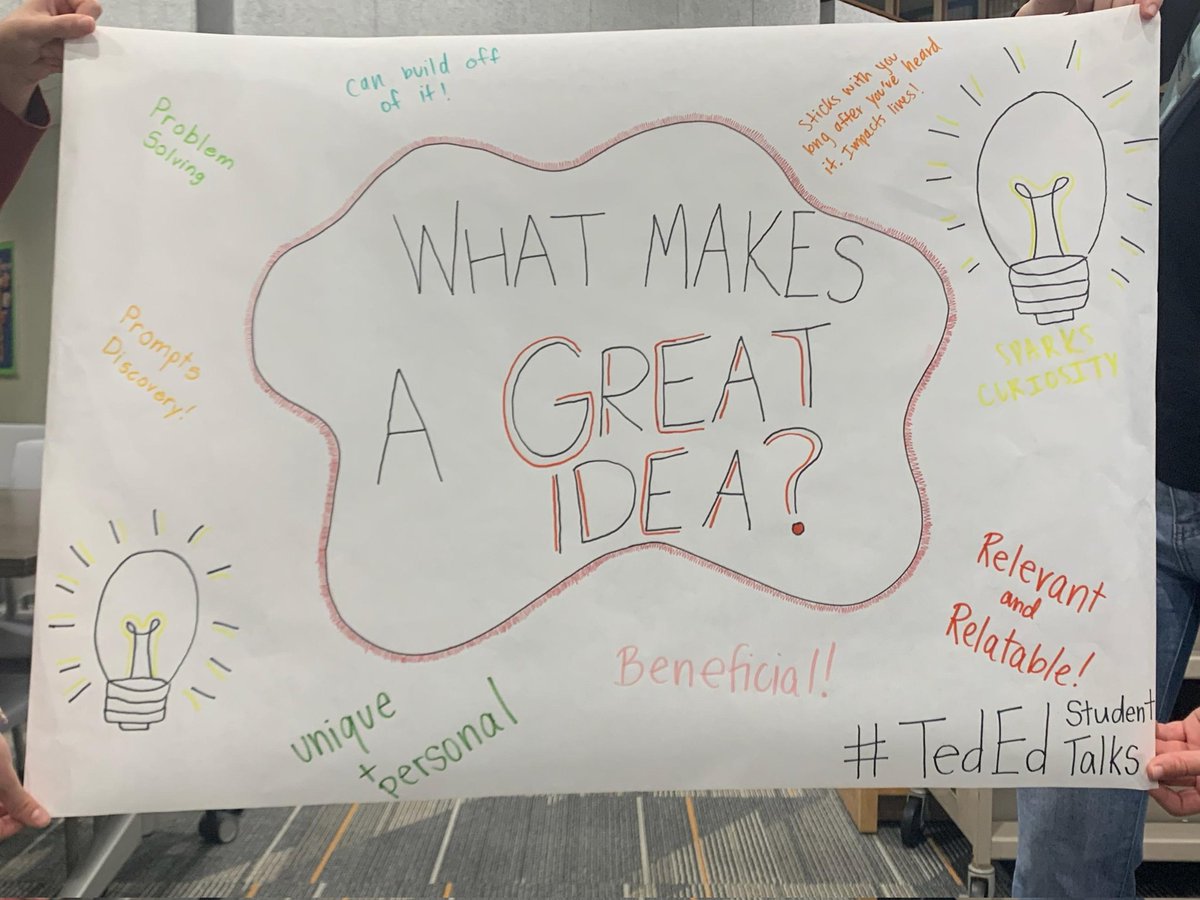 Can build off
of it!
Sticks with you
long after you've heard
it. Impacts lives!
Problem
Solving
WHAT MAKES
A GREAT
IDEA?
Prompts
Discovery!
SPARKS
CURIOSITY
Relevant
and
Relatable!
Beneficial!
unique
+
personal
#TedEd Student
Talks